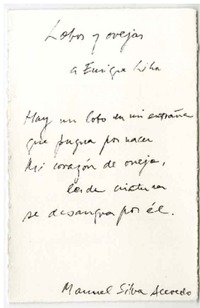 Lobos y ovejas
a Enrique Lihn
Hay un lobo en mi entraña
que pugna por nacer
Mi corazón de oveja,
lerda criatura
se desangra por él.
Manuel Silva Acevedo